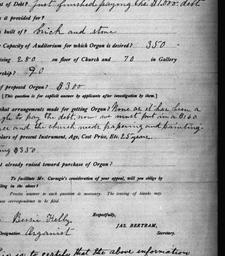 of Debt? Just finished paying the $1000. debt
is it provided for?
built of? brick and stone
Capacity of Auditorium for which Organ is desired? 350
280 on floor of Church and 70 in Gallery
90
of proposed Organ? $300
[This question is for explicit answer by applicants after investigation by them.]
what arrangements made for getting Organ? None as it has been a
to pay the debt, now we must put in a $160
and the church needs papering and painting.
of present Instrument, Age, Cost Price, Etc. 25 years
$350.
already raised toward purchase of Organ?
To facilitate Mr. Carnegie's consideration of your appeal, will you oblige by
in the above?
Precise answer to each question is necessary. The issuing of blanks may
Respectfully,
Bessie Kelly
JAS. BERTRAM,
Designation Organist
Secretary.
to certify that the above information